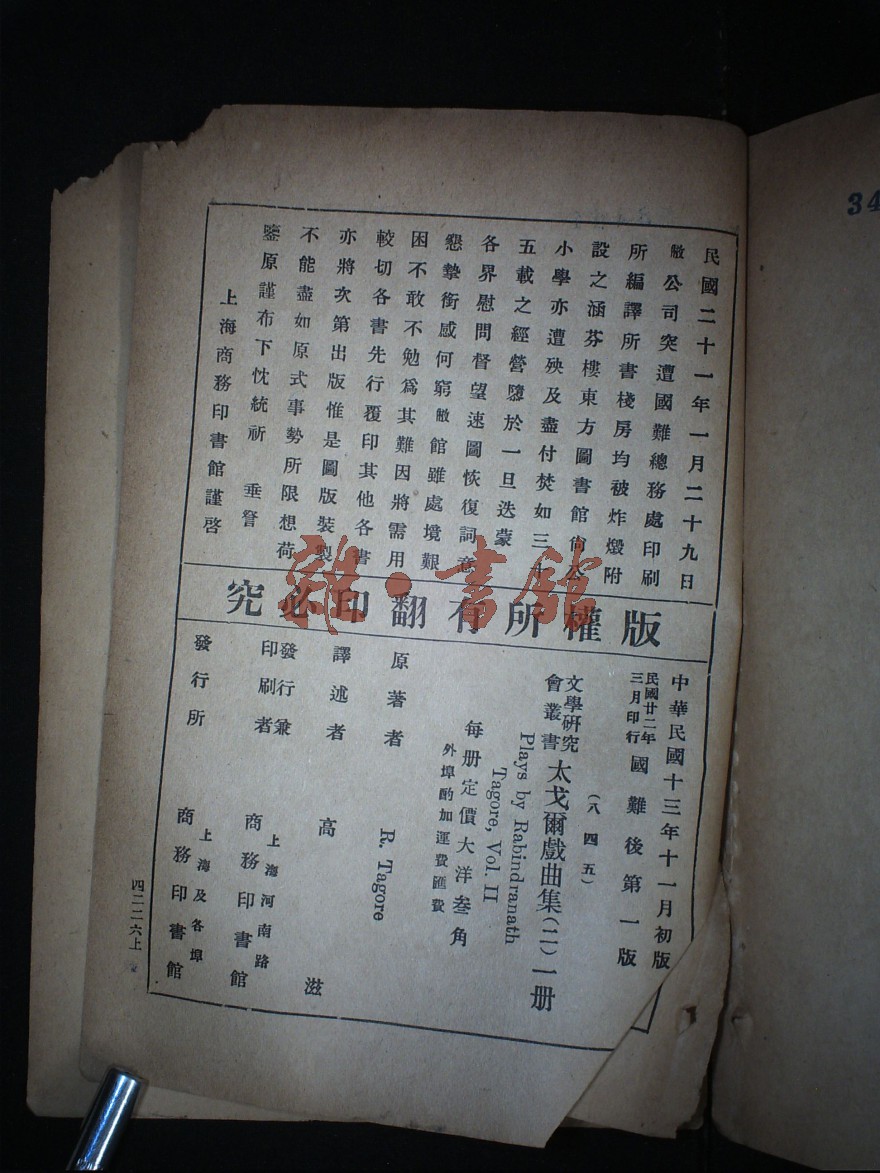 民國二十一年一月二十九日
敝公司突遭國難總務處印刷
所編譯所書棧房均被炸燬附
設之涵芬樓東方圖書館尙公
小學亦遭殃及盡付焚如三十
五載之經營隳於一旦迭蒙
各界慰問督望速圖恢復詞意
懇摯銜感何窮敝館雖處境艱
困不敢不勉爲其難因將需用
較切各書先行覆印其他各書
亦將次第出版惟是圖版裝製
不能盡如原式事勢所限想荷
鑒原謹布下忱統祈 垂詧
上海商務印書館謹啓
版權所有翻印必究
中華民國十三年十一月初版
民國廿二年三月印行 國難後第一版
(八四五)
文學研究會叢書 太戈爾戲曲集(二)一册
Plays by Rabindranath
Tagore, Vol. II
每册定價大洋叁角
外埠酌加運費匯費
原著者 R. Tagore
譯述者 高滋
發行兼印刷者 上海河南路 商務印書館
發行所 上海及各埠 商務印書館
四二二六上
34
雜·書館